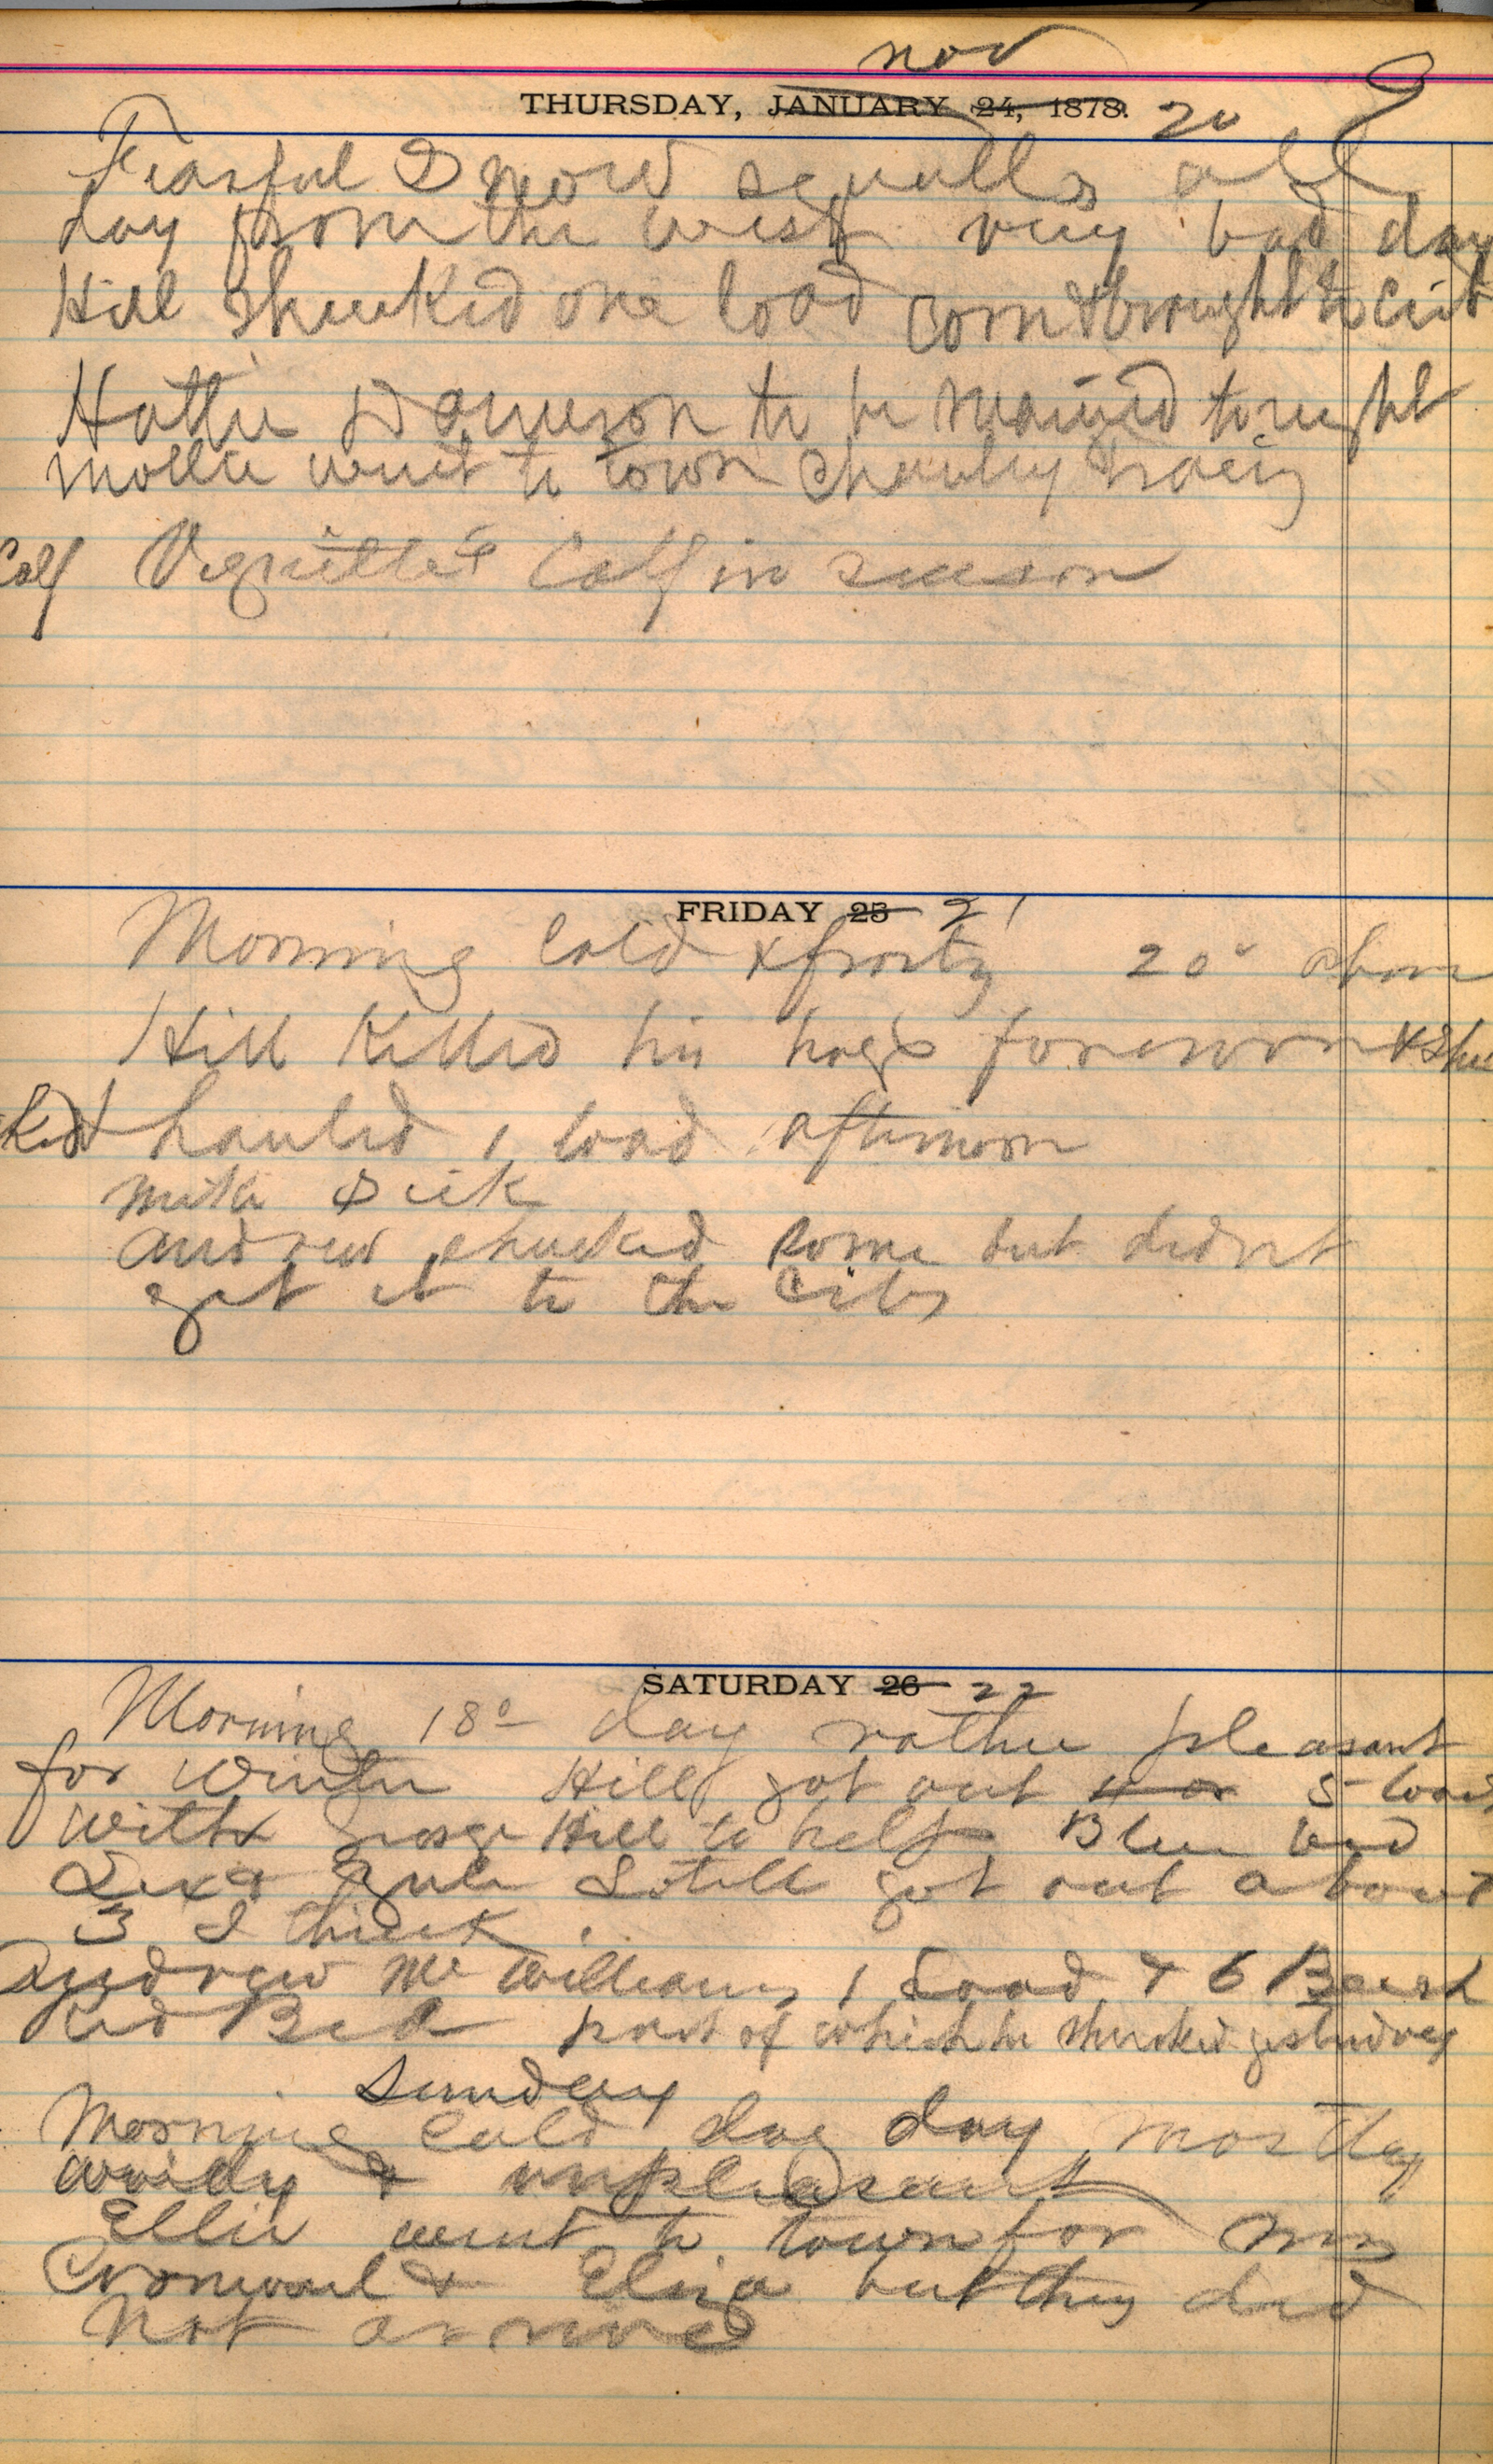 nov
THURSDAY, JANUARY 24, 1878. 20
Fearful Snow squalls all
day from the west very bad day
Hill Shucked one load corn & brought to Crib
Hattie Dameron to be maried tonight
Mollie went to town
Calf Vignette's Calf in season
FRIDAY 25 21
Morning Cold & frosty 20° above
Hill Killed his hogs forenoon & Shu
ked & hauled 1 load afternoon
Mike Sick
Andrew shucked some but didnt
get it to the Crib
SATURDAY 26 22
Morning 18° day rather pleasant
for Winter Hill got out 4 or 5 loads
with George Hill to help
Lex & Still got out about
3 I think
Andrew McWilliams 1 Load & 6 Bush
part of which he shucked yesterday
Sunday
Morning Cold day mostly
windy & unpleasant
Ellie went to town for Mrs
Cromwel & Eliza but they did
not arrive